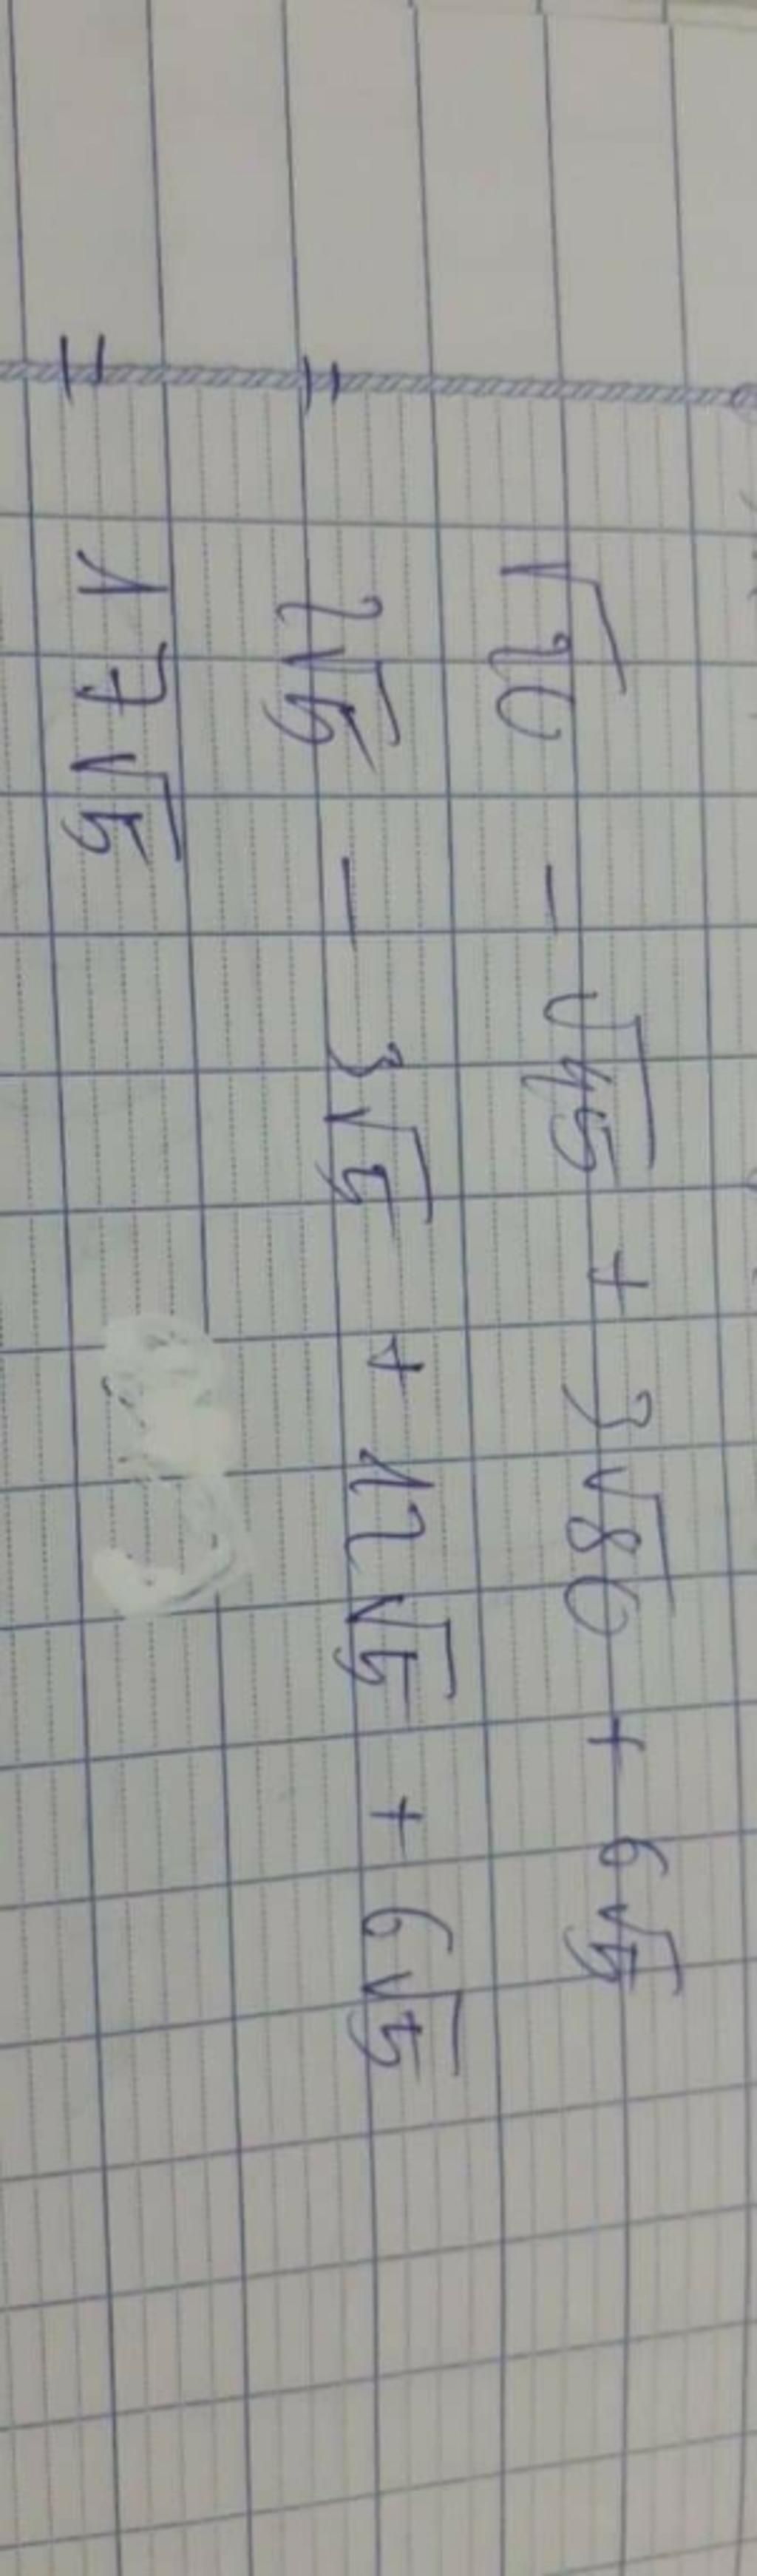 √20 - √45 + 3√80 + 6√5
= 2√5 - 3√5 + 12√5 + 6√5
= 17√5